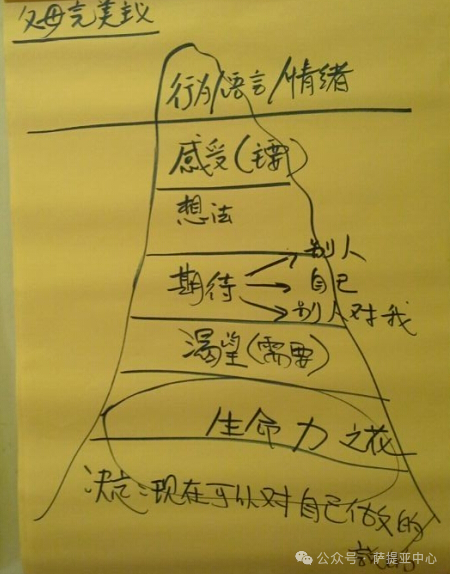 父母完美议
行为/语言/情绪
感受(主要)
想法
期待
别人
自己
别人对我
渴望(需要)
生命力之花
决定:现在可以对自己做的
公众号·萨提亚中心